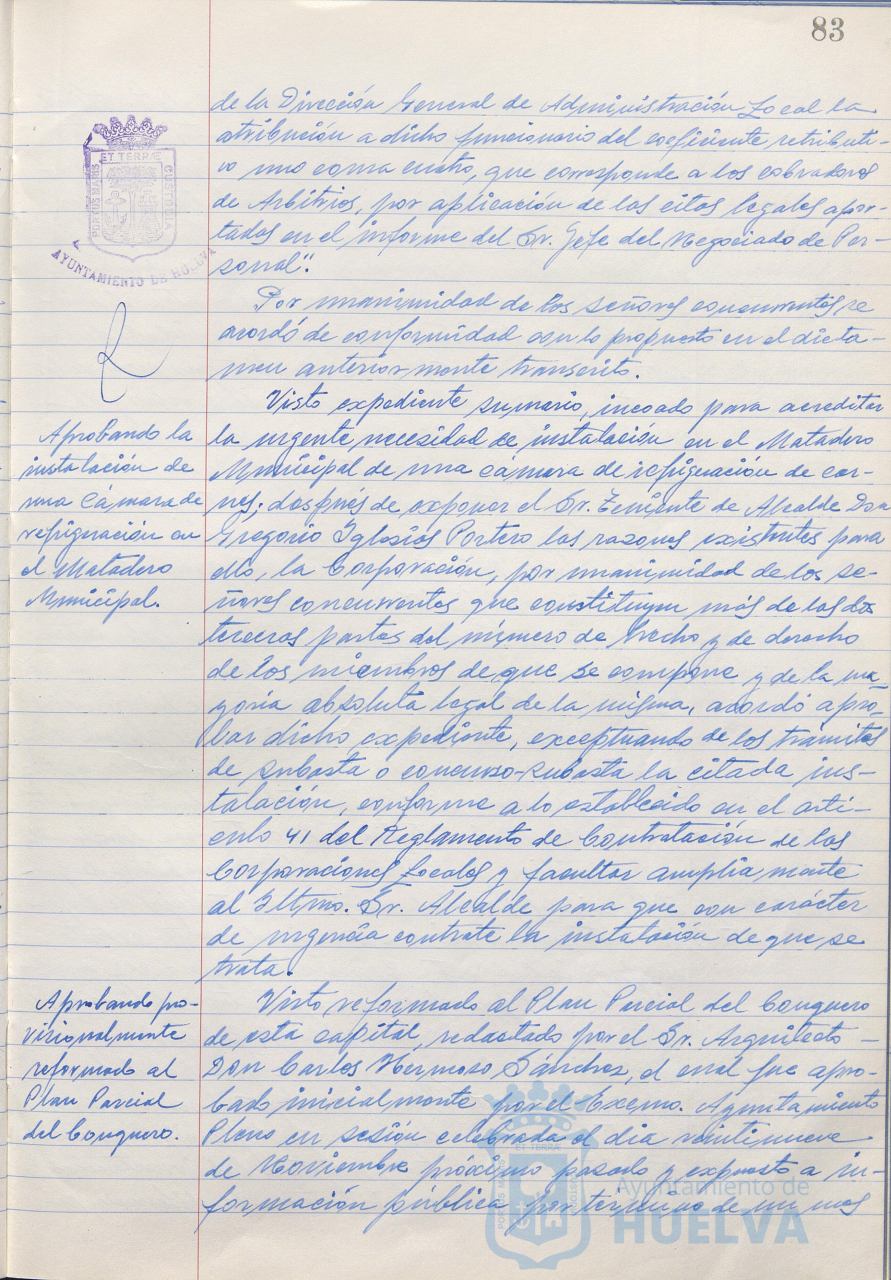 83
de la Dirección General de Administración Local la
atribución a dicho funcionario del coeficiente retributi-
vo uno coma cuatro, que corresponde a los cobradores
de Arbitrios, por aplicación de las citas legales apor-
tadas en el informe del Sr. Jefe del Negociado de Per-
sonal".
Por unanimidad de los señores concurrentes, se
acordó de conformidad con lo propuesto en el dicta-
men anteriormente transcrito.
Aprobando la
instalación de
una Cámara de
refrigeración en
el Matadero
Municipal.
Visto expediente sumario, incoado para acreditar
la urgente necesidad de instalación en el Matadero
Municipal de una cámara de refrigeración de car-
nes; después de exponer el Sr. Teniente de Alcalde Don
Gregorio Iglesias Portero las razones existentes para
ello, la Corporación, por unanimidad de los se-
ñores concurrentes que constituyen más de las dos
terceras partes del número de hecho y de derecho
de los miembros de que se compone y de la ma-
yoría absoluta legal de la misma, acordó apro-
bar dicho expediente, exceptuando de los trámites
de subasta o concurso-subasta la citada ins-
talación, conforme a lo establecido en el artí-
culo 41 del Reglamento de Contratación de las
Corporaciones Locales y facultar ampliamente
al Iltmo. Sr. Alcalde para que con carácter
de urgencia contrate la instalación de que se
trata.
Aprobando pro-
visionalmente
reformado al
Plan Parcial
del Conquero.
Visto reformado al Plan Parcial del Conquero
de esta capital, redactado por el Sr. Arquitecto
Don Carlos Hermoso Sánchez, el cual fue apro-
bado inicialmente por el Excmo. Ayuntamiento
Pleno en sesión celebrada el día veintinueve
de Noviembre próximo pasado y expuesto a in-
formación pública por término de un mes
ET TERRÆ
PORTUS MARIS
CUSTODIA
AYUNTAMIENTO DE HUELVA
Ayuntamiento de
HUELVA